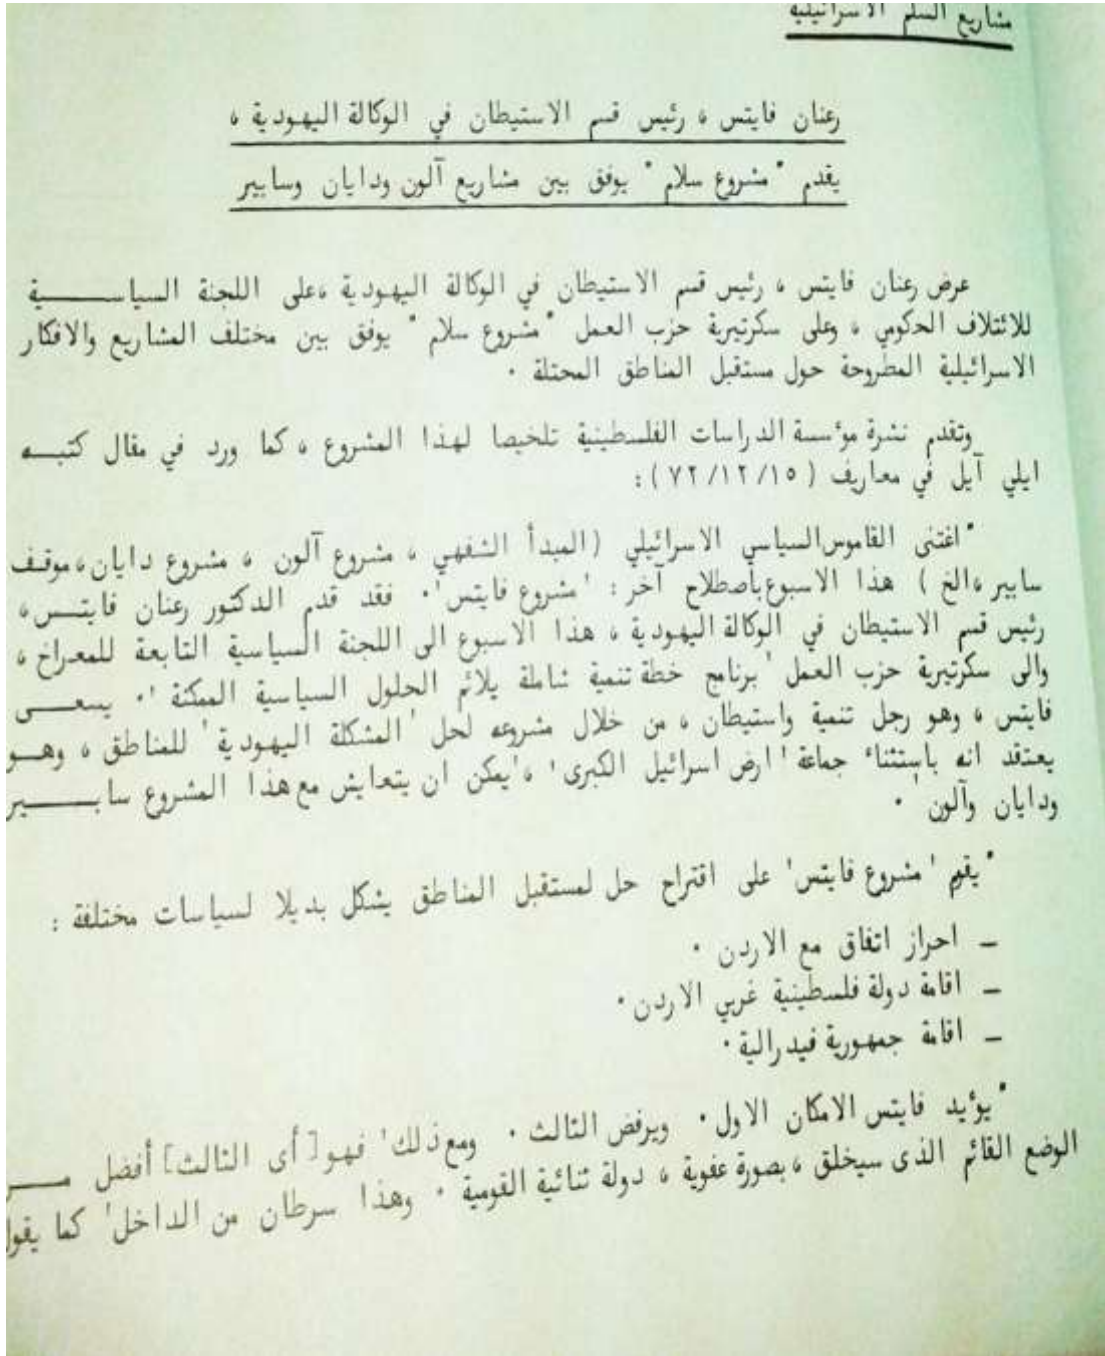 مشاريع السلم الاسرائيلية
رعنان فايتس ، رئيس قسم الاستيطان في الوكالة اليهودية ،
يقدم "مشروع سلام" يوفق بين مشاريع آلون ودايان وسابير
عرض رعنان فايتس ، رئيس قسم الاستيطان في الوكالة اليهودية ،على اللجنة السياســـــية
للائتلاف الحكومي ، وعلى سكرتيرية حزب العمل "مشروع سلام" يوفق بين مختلف المشاريع والافكار
الاسرائيلية المطروحة حول مستقبل المناطق المحتلة .
وتقدم نشرة مؤسسة الدراسات الفلسطينية تلخيصا لهذا المشروع ، كما ورد في مقال كتبــه
ايلي آيل في معاريف ( ٧٢/١٢/١٥ ) :
"اغتنى القاموس السياسي الاسرائيلي (المبدأ الشفهي ، مشروع آلون ، مشروع دايان ،موقف
سابير ،الخ ) هذا الاسبوع باصطلاح آخر : 'مشروع فايتس'. فقد قدم الدكتور رعنان فايتــس ،
رئيس قسم الاستيطان في الوكالة اليهودية ، هذا الاسبوع الى اللجنة السياسية التابعة للمعراخ ،
والى سكرتيرية حزب العمل 'برنامج خطة تنمية شاملة يلائم الحلول السياسية الممكنة '. يسعــــى
فايتس ، وهو رجل تنمية واستيطان ، من خلال مشروعه لحل 'المشكلة اليهودية' للمناطق ، وهــو
يعتقد انه باستثناء جماعة 'ارض اسرائيل الكبرى' ،'يمكن ان يتعايش مع هذا المشروع سابـــــير
ودايان وآلون' .
"يقوم 'مشروع فايتس' على اقتراح حل لمستقبل المناطق يشكل بديلا لسياسات مختلفة :
ـ احراز اتفاق مع الاردن .
ـ اقامة دولة فلسطينية غربي الاردن .
ـ اقامة جمهورية فيدرالية .
"يؤيد فايتس الامكان الاول . ويرفض الثالث . ومع ذلك 'فهو [أى الثالث] أفضل
الوضع القائم الذى سيخلق ، بصورة عفوية ، دولة ثنائية القومية . وهذا سرطان من الداخل' كما يقول